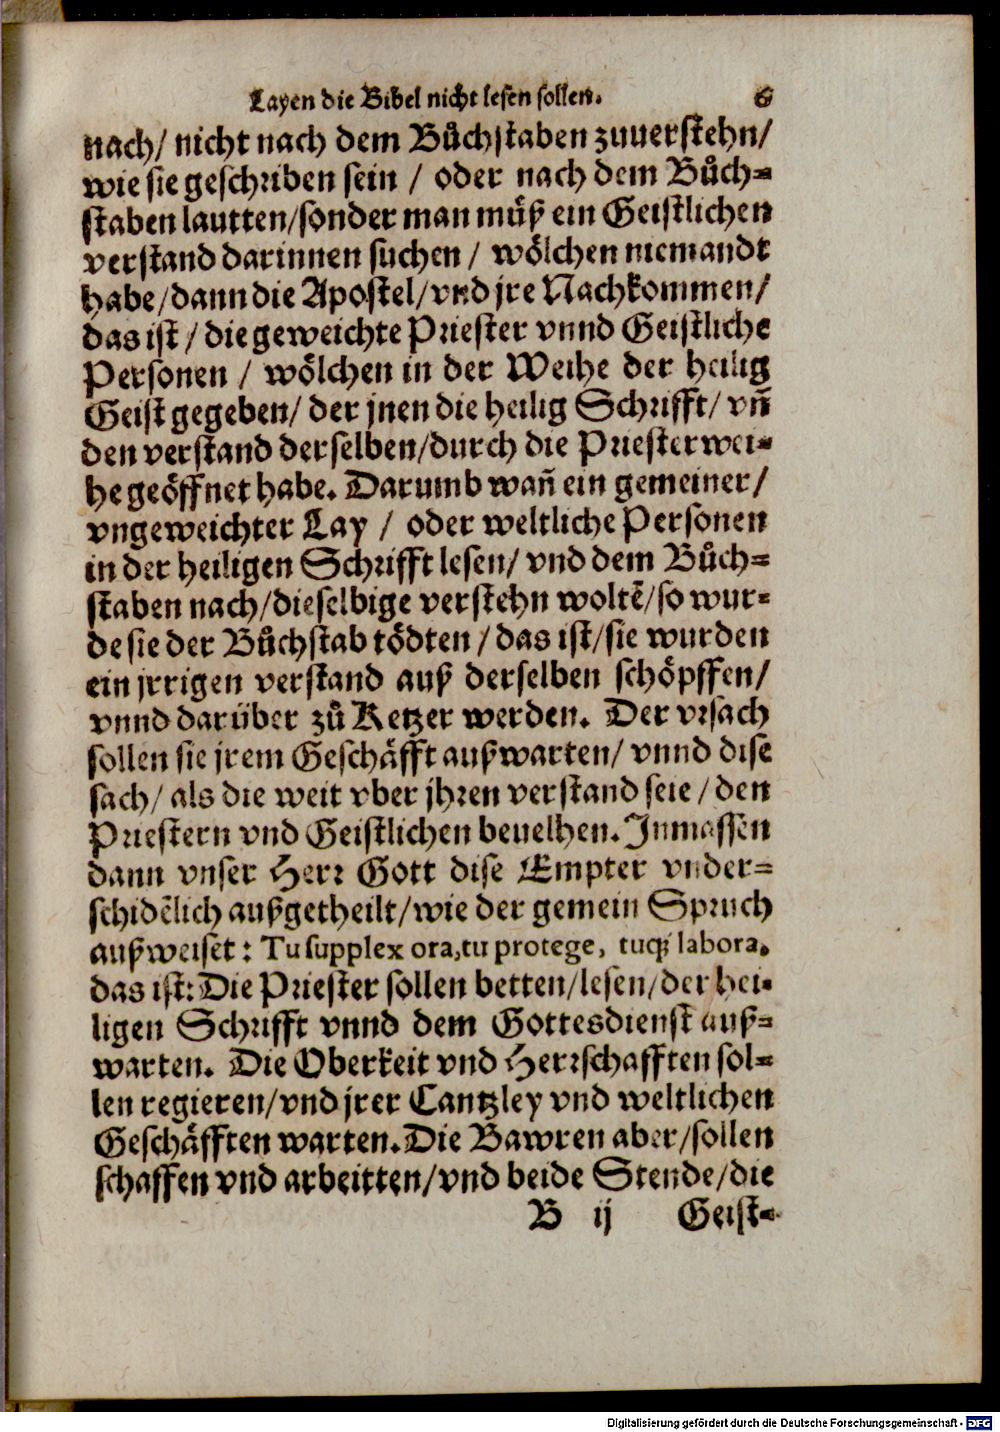 Layen die Bibel nicht lesen sollen. 6
nach/ nicht nach dem Bůchstaben zuuerstehn/
wie sie geschriben sein / oder nach dem Bůch=
staben lautten/sonder man můß ein Geistlichen
verstand darinnen suchen / wölchen niemandt
habe/dann die Apostel/vnd jre Nachkommen/
das ist / die geweichte Priester vnnd Geistliche
Personen / wölchen in der Weihe der heilig
Geist gegeben/ der jnen die heilig Schrifft/ vñ
den verstand derselben/durch die Priesterwei=
he geöffnet habe. Darumb wañ ein gemeiner/
vngeweichter Lay / oder weltliche Personen
in der heiligen Schrifft lesen/ vnd dem Bůch=
staben nach/dieselbige verstehn woltē/so wur=
de sie der Bůchstab tödten / das ist/sie wurden
ein jrrigen verstand auß derselben schöpffen/
vnnd darüber zů Ketzer werden. Der vrsach
sollen sie jrem Geschäfft außwarten/ vnnd dise
sach/ als die weit vber jhren verstand seie / den
Priestern vnd Geistlichen beuelhen. Inmassen
dann vnser Herr Gott dise Empter vnder=
schidēlich außgetheilt/wie der gemein Spruch
außweiset: Tu supplex ora,tu protege, tuq́; labora.
das ist: Die Priester sollen betten/lesen/der hei=
ligen Schrifft vnnd dem Gottesdienst auß=
warten. Die Oberkeit vnd Herrschafften sol=
len regieren/vnd jrer Cantzley vnd weltlichen
Geschäfften warten. Die Bawren aber/sollen
schaffen vnd arbeitten/vnd beide Stende/die
B ij Geist=
Digitalisierung gefördert durch die Deutsche Forschungsgemeinschaft - DFG